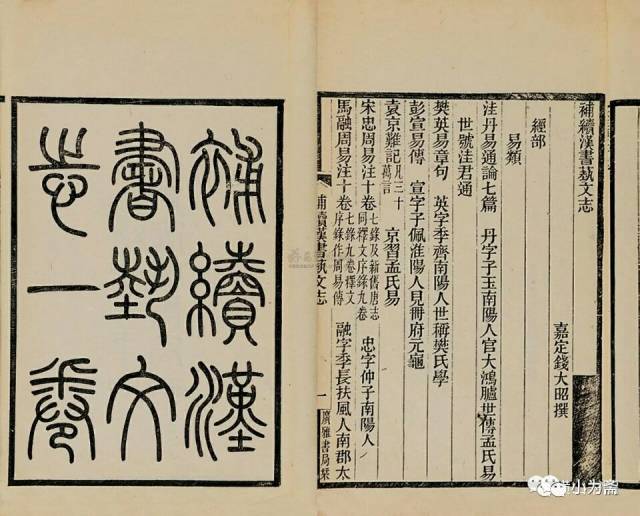 補續漢
書藝文
志一卷
補續漢書藝文志
嘉定錢大昭撰
經部
易類
洼丹易通論七篇 丹字子玉南陽人官大鴻臚世傳孟氏易
世號洼君通
樊英易章句 英字季齊南陽人世稱樊氏學
彭宣易傳 宣字子佩淮陽人見冊府元龜
袁京難記凡三十萬言 京習孟氏易
宋忠周易注十卷七錄及新舊唐志同釋文序錄九卷 忠字仲子南陽人
馬融周易注十卷七錄九卷釋文序錄作周易傳 融字季長扶風人南郡太
補續漢書藝文志 一 廣雅書局栞
小为斋